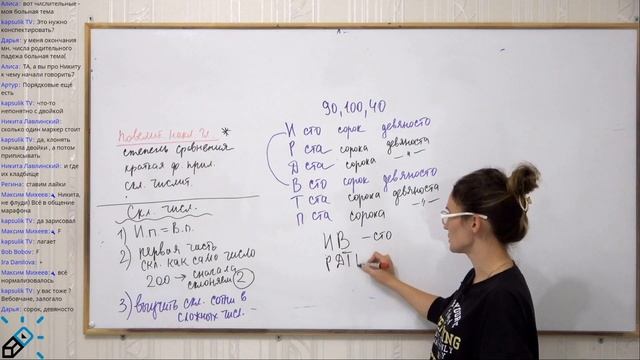 Алиса: вот числительные -
моя больная тема
kapsulik TV: Это нужно
конспектировать?
Дарья: у меня окончания
мн. числа родительного
падежа больная тема(
Алиса: ТА, а вы про Никиту
к чему начали говорить?
Артур: Порядковые ещё
есть
kapsulik TV: что-то
непонятно с двойкой
Никита Лавлинский:
сколько один маркер стоит
kapsulik TV: да, клонять
сначала двойки , а потом
приписывать
Никита Лавлинский: и где
их кладбище
Регина: ставим лайки
Максим Михеев: Никита,
не флуди) Всё в общение
марафона
kapsulik TV: да зарисовал
Максим Михеев: F
kapsulik TV: лагает
Bob Bobov: F
Ira Danilova: +
Максим Михеев: всё
нормализовалось
kapsulik TV: у вас тоже ?
Вебовчане, залогало
Дарья: сорок, девяносто
повелит накл. И. *
степень сравнения
краткая ф. прил.
скл. числит.
Скл. числ.
1) И.п = В.п.
2) первая часть
скл. как само число
200 → сначала
склоняем 2
3) выучить скл. сотни в
сложных числ. -
90, 100, 40
И сто сорок девяносто
Р ста сорока девяноста
Д ста сорока — " —
В сто сорок девяносто
Т ста сорока девяноста
П ста сорока — " —
ИВ - сто
РДТ